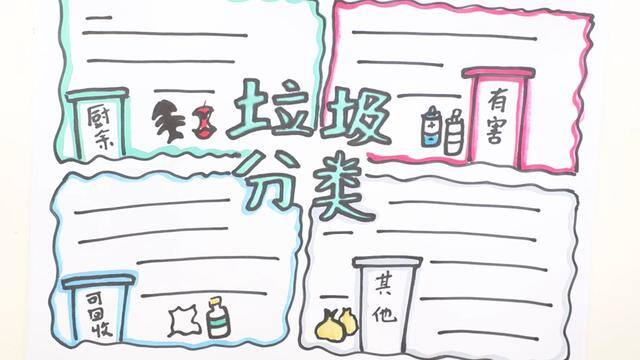 厨余
有害
垃圾
分类
可回收
其他